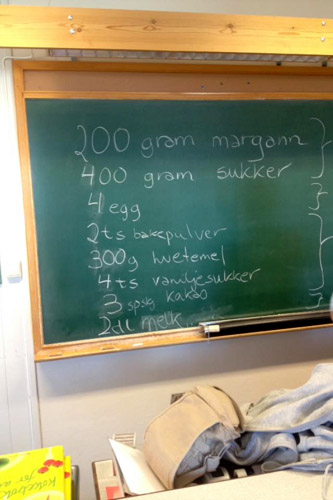 200 gram margarin
400 gram sukker
4 egg
2ts bakepulver
300g hvetemel
4 ts vaniljesukker
3 spsk kakao
2dl melk
Kokebok
for a